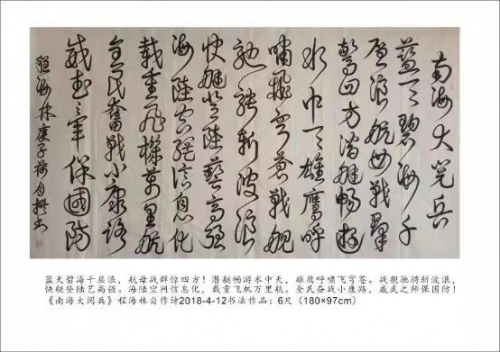 南海大阅兵
藍天碧海千
層浪航母戰群
驚四方潛艇暢遊
水中天雄鷹呼
嘯飛穹蒼戰艦
馳騁斬波浪
快艇登陸藝高強
海陸空網信息化
載重飛機萬里航
全民奮戰小康路
威武之軍保國防
程海林庚子荷月撰书
蓝天碧海千层浪，航母战群惊四方！潜艇畅游水中天，雄鹰呼啸飞穹苍。战舰驰骋斩波浪，
快艇登陆艺高强。海陆空网信息化，载重飞机万里航。全民奋战小康路，威武之师保国防！
《南海大阅兵》程海林自作诗2018-4-12书法作品：6尺（180×97cm）